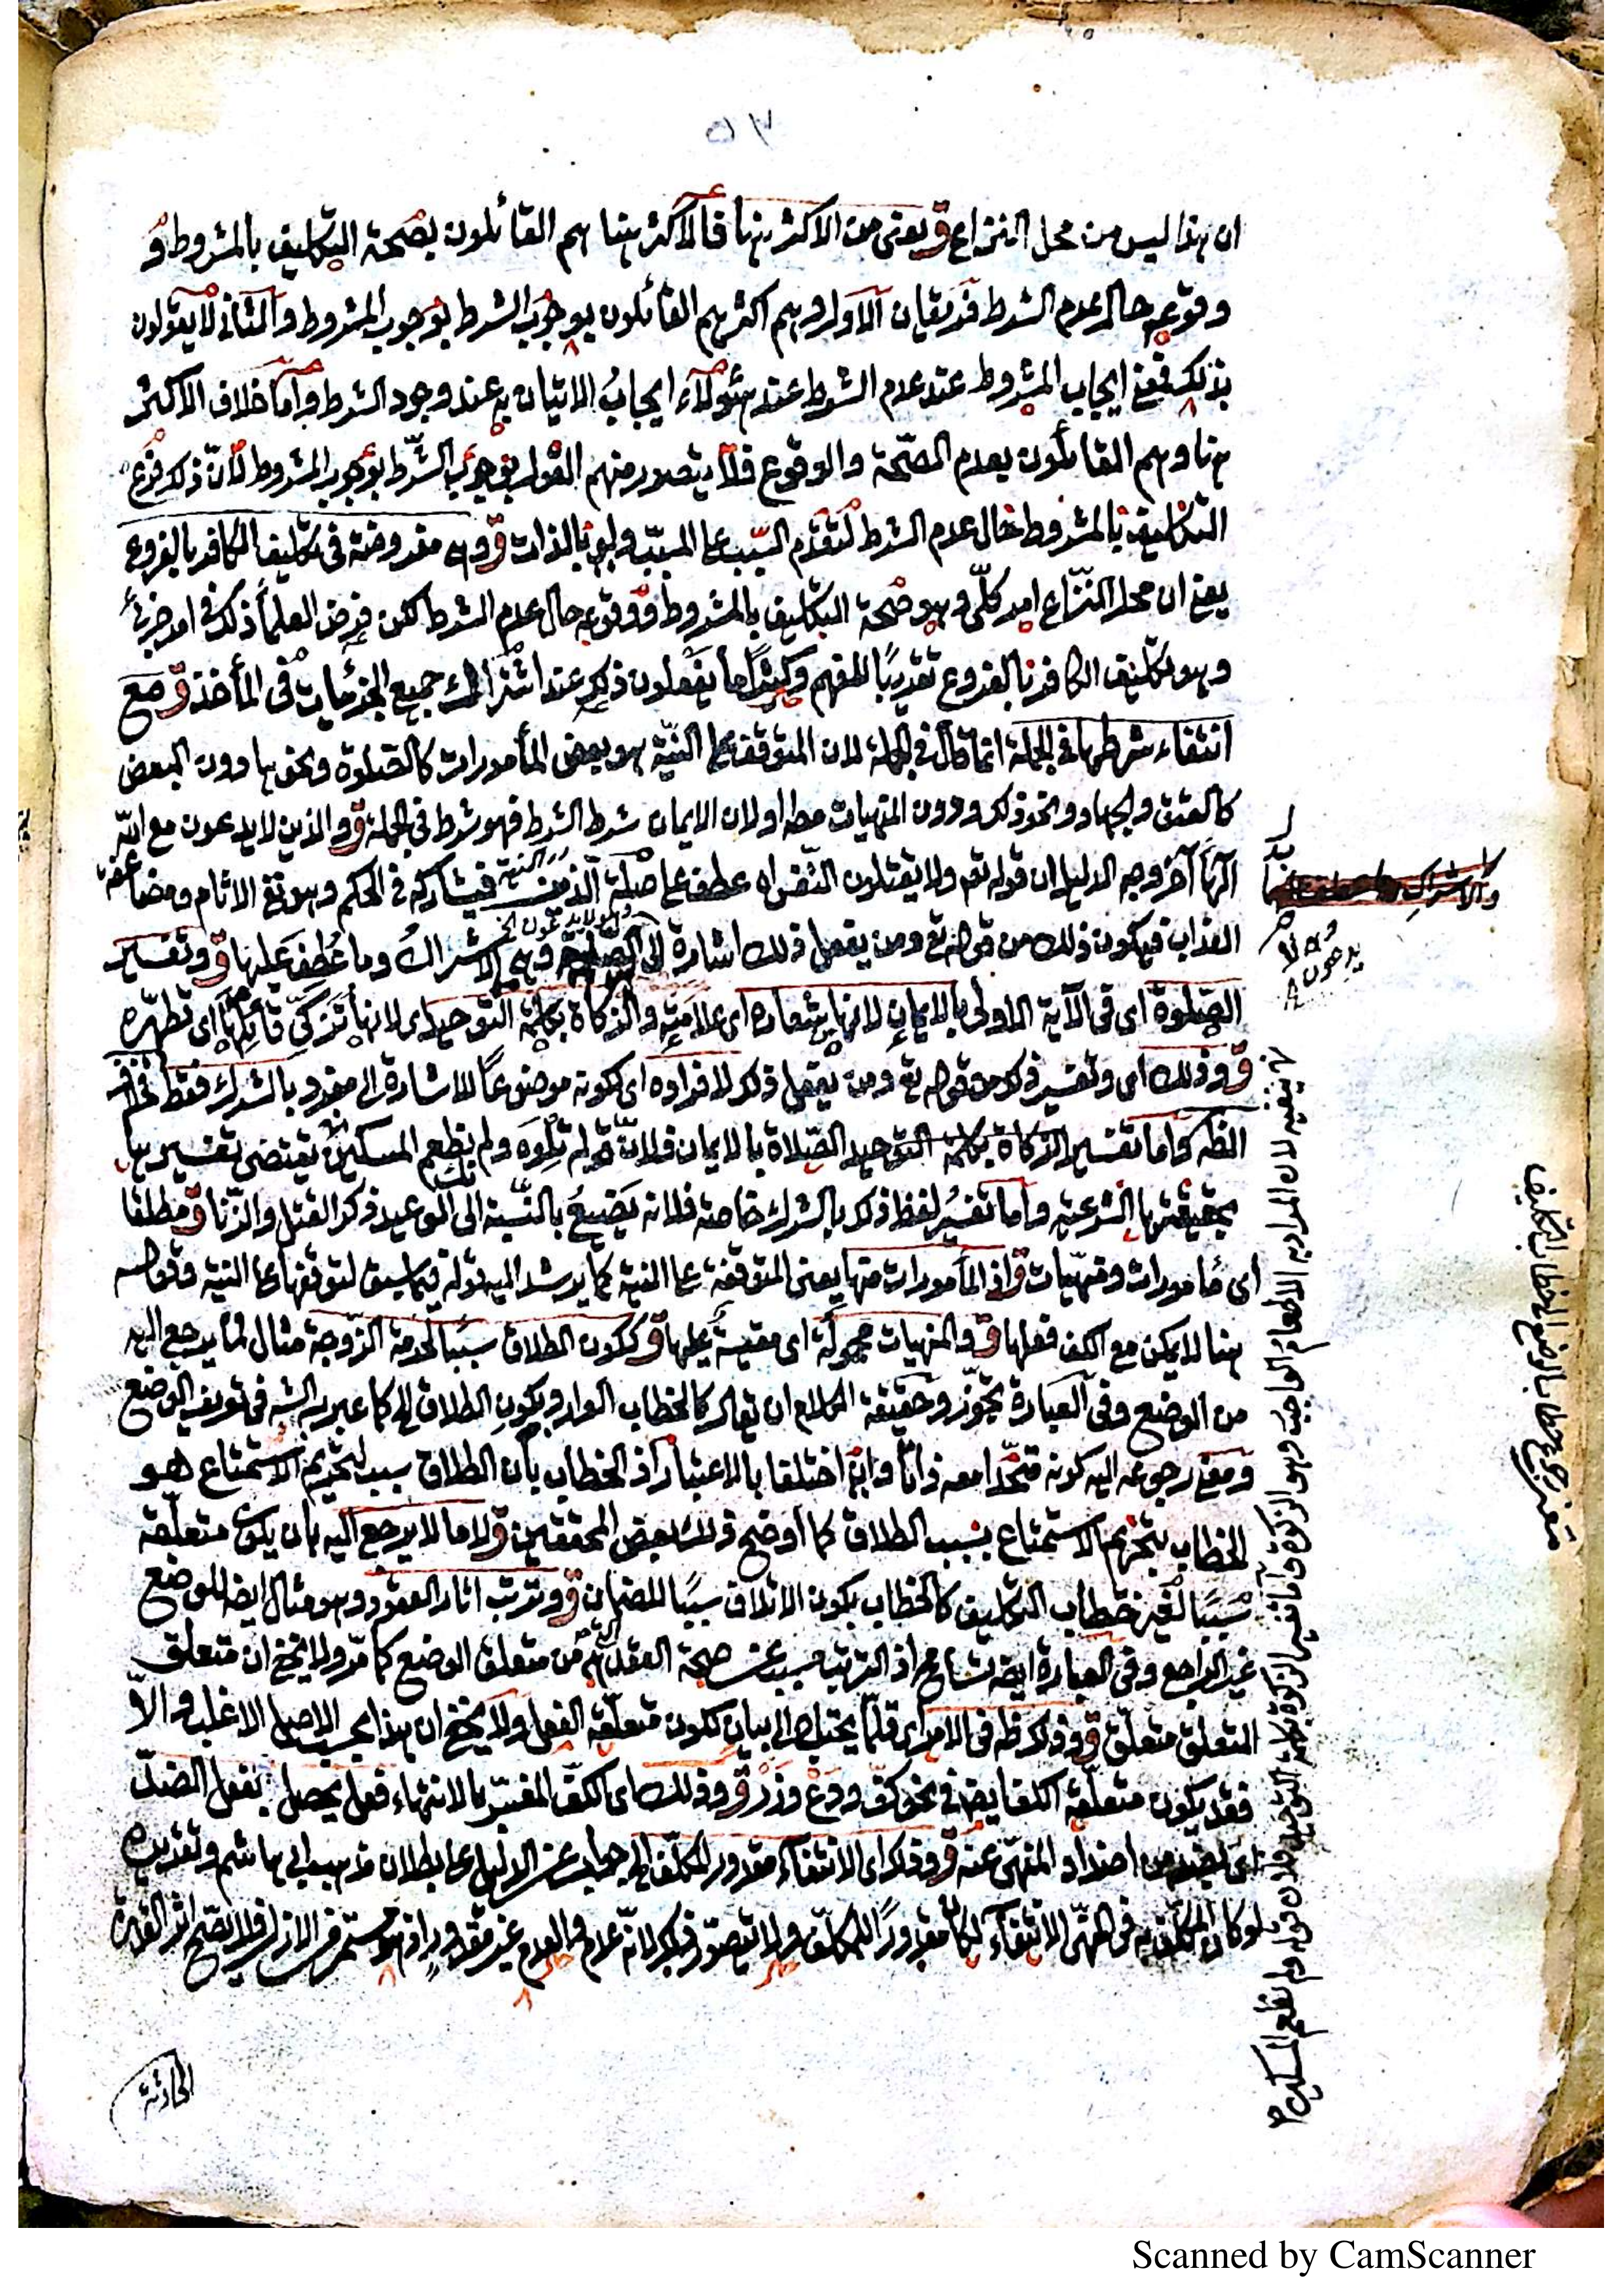 ٧٥
ان هذا ليس من محل النزاع ق يعنى من الاكثر هنا فالاكثر هنا هم القائلون بصحة التكليف بالمشروط و
وقوعه حال عدم الشرط فريقان الاول وهم اكثرهم القائلون بوجوب الشرط بوجوب المشروط والثانى لا يقولون
بذلك فمعنى ايجاب المشروط عند عدم الشرط عند هؤلاء ايجاب الاتيان به عند وجود الشرط واما خلاف الاكثر
هنا وهم القائلون بعدم الصحة والوقوع فلا يتصور منهم القول بوجوب الشرط بوجوب المشروط لان ذلك فرع
التكليف بالمشروط حال عدم الشرط لتقدم السبب على المسبب ولو بالذات ق وهى مفروضة فى تكليف الكافر بالفروع
يعنى ان محل النزاع امر كلّى وهو صحة التكليف بالمشروط ووقوعه حال عدم الشرط لكن فرض العلماء ذلك فى امر جزئى
وهو تكليف الكافر بالفروع تقريبًا للفهم وكثيرًا ما يفعلون ذلك عند اشتراك جميع الجزئيات فى المأخذ ق مع
انتفاء شرطها فى الجملة انما قال فى الجملة لان المتوقف على النية هو بعض المأمورات كالصلوة ونحوها دون البعض
كالعتق والجهاد ونحو ذلك ودون المنهيات مط او لان الايمان شرط الشرط فهو شرط فى الجملة ق والذين لا يدعون مع الله
الهًا آخر وجه الدليل ان قوله تع ولا يقتلون النفس اه عطف على صلة الذين فيشاركه فى الحكم وهو لقى الاثام ومضاعفة
العذاب فيكون ذلك من قوله تع ومن يفعل ذلك اشارة الى وهى الاشراك وما عطف عليها ق وتفسير
الصلوة اى فى الآية الاولى بالايمان لانها شعاره اى علامته والزكاة بكلمة التوحيد اى لانها تزكى قائلها اى تطهّره
ق وذلك اى وتفسير ذلك من قوله تع ومن يفعل ذلك لافراده اى كونه موضوعًا للاشارة الى مفرد بالشرك فقط
الظ واما تفسير الزكاة بكلمة التوحيد الصلاة بالايمان فلان قوله تلوه ولم نك نطعم المسكين يقتضى تفسيرها
بحقيقتها الشرعية واما تفسير لفظ ذلك بالشرك خاصة فلانه يضيع بالنسبة الى الوعيد ذكر القتل والزنا ق مطلقا
اى مامورات ومنهيات ق اذ المأمورات منها يعنى المتوقفة على النية كما يرشد اليه قوله فيما سبق لتوقفها على النية وقوله
هنا لا يمكن مع الكف فعلها ق والمنهيات محمولة اى مقيسة عليها ق ككون الطلاق سببًا لحرمة الزوجة مثال لما يرجع اليه
من الوضع وفى العبارة تجوّز وحقيقة الكلام ان يقال كالخطاب الوارد بكون الطلاق كما عبر به الشه فى تعريف الوضع
ومعنى رجوعه اليه كونه متحدًا معه ذاتًا وان اختلفا بالاعتبار اذ الخطاب بان الطلاق سبب لتحريم الاستمتاع هو
الخطاب بتحريم الاستمتاع بسبب الطلاق كما اوضح ذلك بعض المحققين ق لا ما لا يرجع اليه بان يكون متعلقه
سببًا لغير خطاب التكليف كالخطاب بكون الاتلاف سببًا للضمان ق وترتب اثار العقود وهو مثال ايض للوضع
غير الراجع وفى العبارة ايض تسامح اذ الترتب مسبب عن صحة العقد من متعلق الوضع كما مرّ ولا يخفى ان متعلق
التعلق متعلق ق وذلك ظ فى الامر اى قلما يحتاج الى بيان ككون متعلقه الفعل ولا يخفى ان هذا بحسب الاصل الاغلب والاّ
فقد يكون متعلقه الكف ايض فى نحو كفّ ودع وذر ق وذلك اى الكف المفسّر بالانتهاء فعل يحصل بفعل الضدّ
اى لضد من اضداد المنهى عنه ق وذلك اى الانتفاء مقدور للمكلف الى جواب عن الدليل على بطلان مذهب ابى هاشم وتقديره
لو كان المكلف به فى النهى الانتفاء لكان مقدورًا للمكلف ولا يتصور ذلك لانه عدم والعدم غير مقدور اذ هو مستمر من الازل فلا يصلح اثر القدرة
الحادثة
والاشراك
وهو لا يدعون الخ
يدعون
ينفيه لان المراد به الاطعام الواجب وهو الزكوة واما تفسير الزكوة بكلمة التوحيد فلان قوله ولم نك نطعم المسكين
معنى رجوع خطاب الوضع الى خطاب التكليف
Scanned by CamScanner